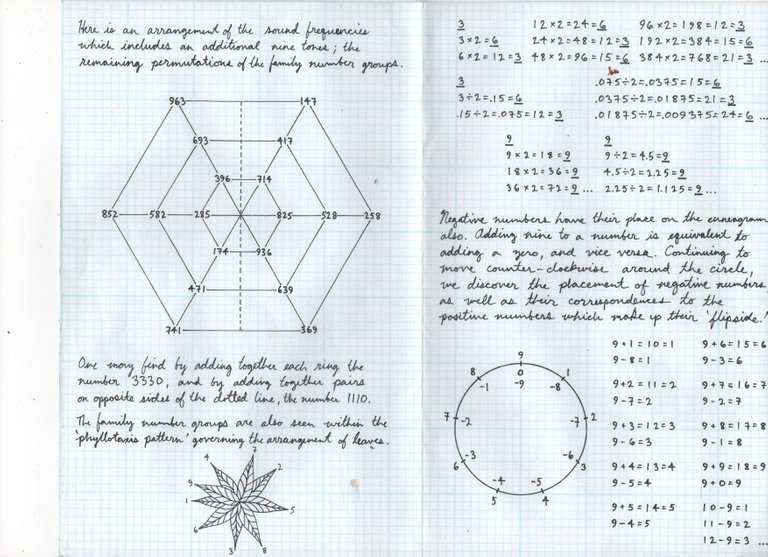 Here is an arrangement of the sound frequencies
which includes an additional nine tones; the
remaining permutations of the family number groups.
963 147
693 417
396 714
852 582 285 825 528 258
174 936
471 639
741 369
One may find by adding together each ring the
number 3330, and by adding together pairs
on opposite sides of the dotted line, the number 1110.
The family number groups are also seen within the
'phyllotaxis pattern' governing the arrangement of leaves.
7
4 2
9
1 5
6
3 8
3 12×2=24=6 96×2=198=12=3
3×2=6 24×2=48=12=3 192×2=384=15=6
6×2=12=3 48×2=96=15=6 384×2=768=21=3 ...
3 .075÷2=.0375=15=6
3÷2=.15=6 .0375÷2=.01875=21=3
.15÷2=.075=12=3 .01875÷2=.009375=24=6 ...
9 9
9×2=18=9 9÷2=4.5=9
18×2=36=9 4.5÷2=2.25=9
36×2=72=9 ... 2.25÷2=1.125=9 ...
Negative numbers have their place on the enneagram
also. Adding nine to a number is equivalent to
adding a zero, and vice versa. Continuing to
move counter-clockwise around the circle,
we discover the placement of negative numbers
as well as their correspondences to the
positive numbers which make up their 'flipside.'
9
8 0 1
-1 -9 -8
7 -2 -7 2
-3 -6
6 3
-4 -5
5 4
9+1=10=1 9+6=15=6
9-8=1 9-3=6
9+2=11=2 9+7=16=7
9-7=2 9-2=7
9+3=12=3 9+8=17=8
9-6=3 9-1=8
9+4=13=4 9+9=18=9
9-5=4 9+0=9
9+5=14=5 10-9=1
9-4=5 11-9=2
12-9=3 ...